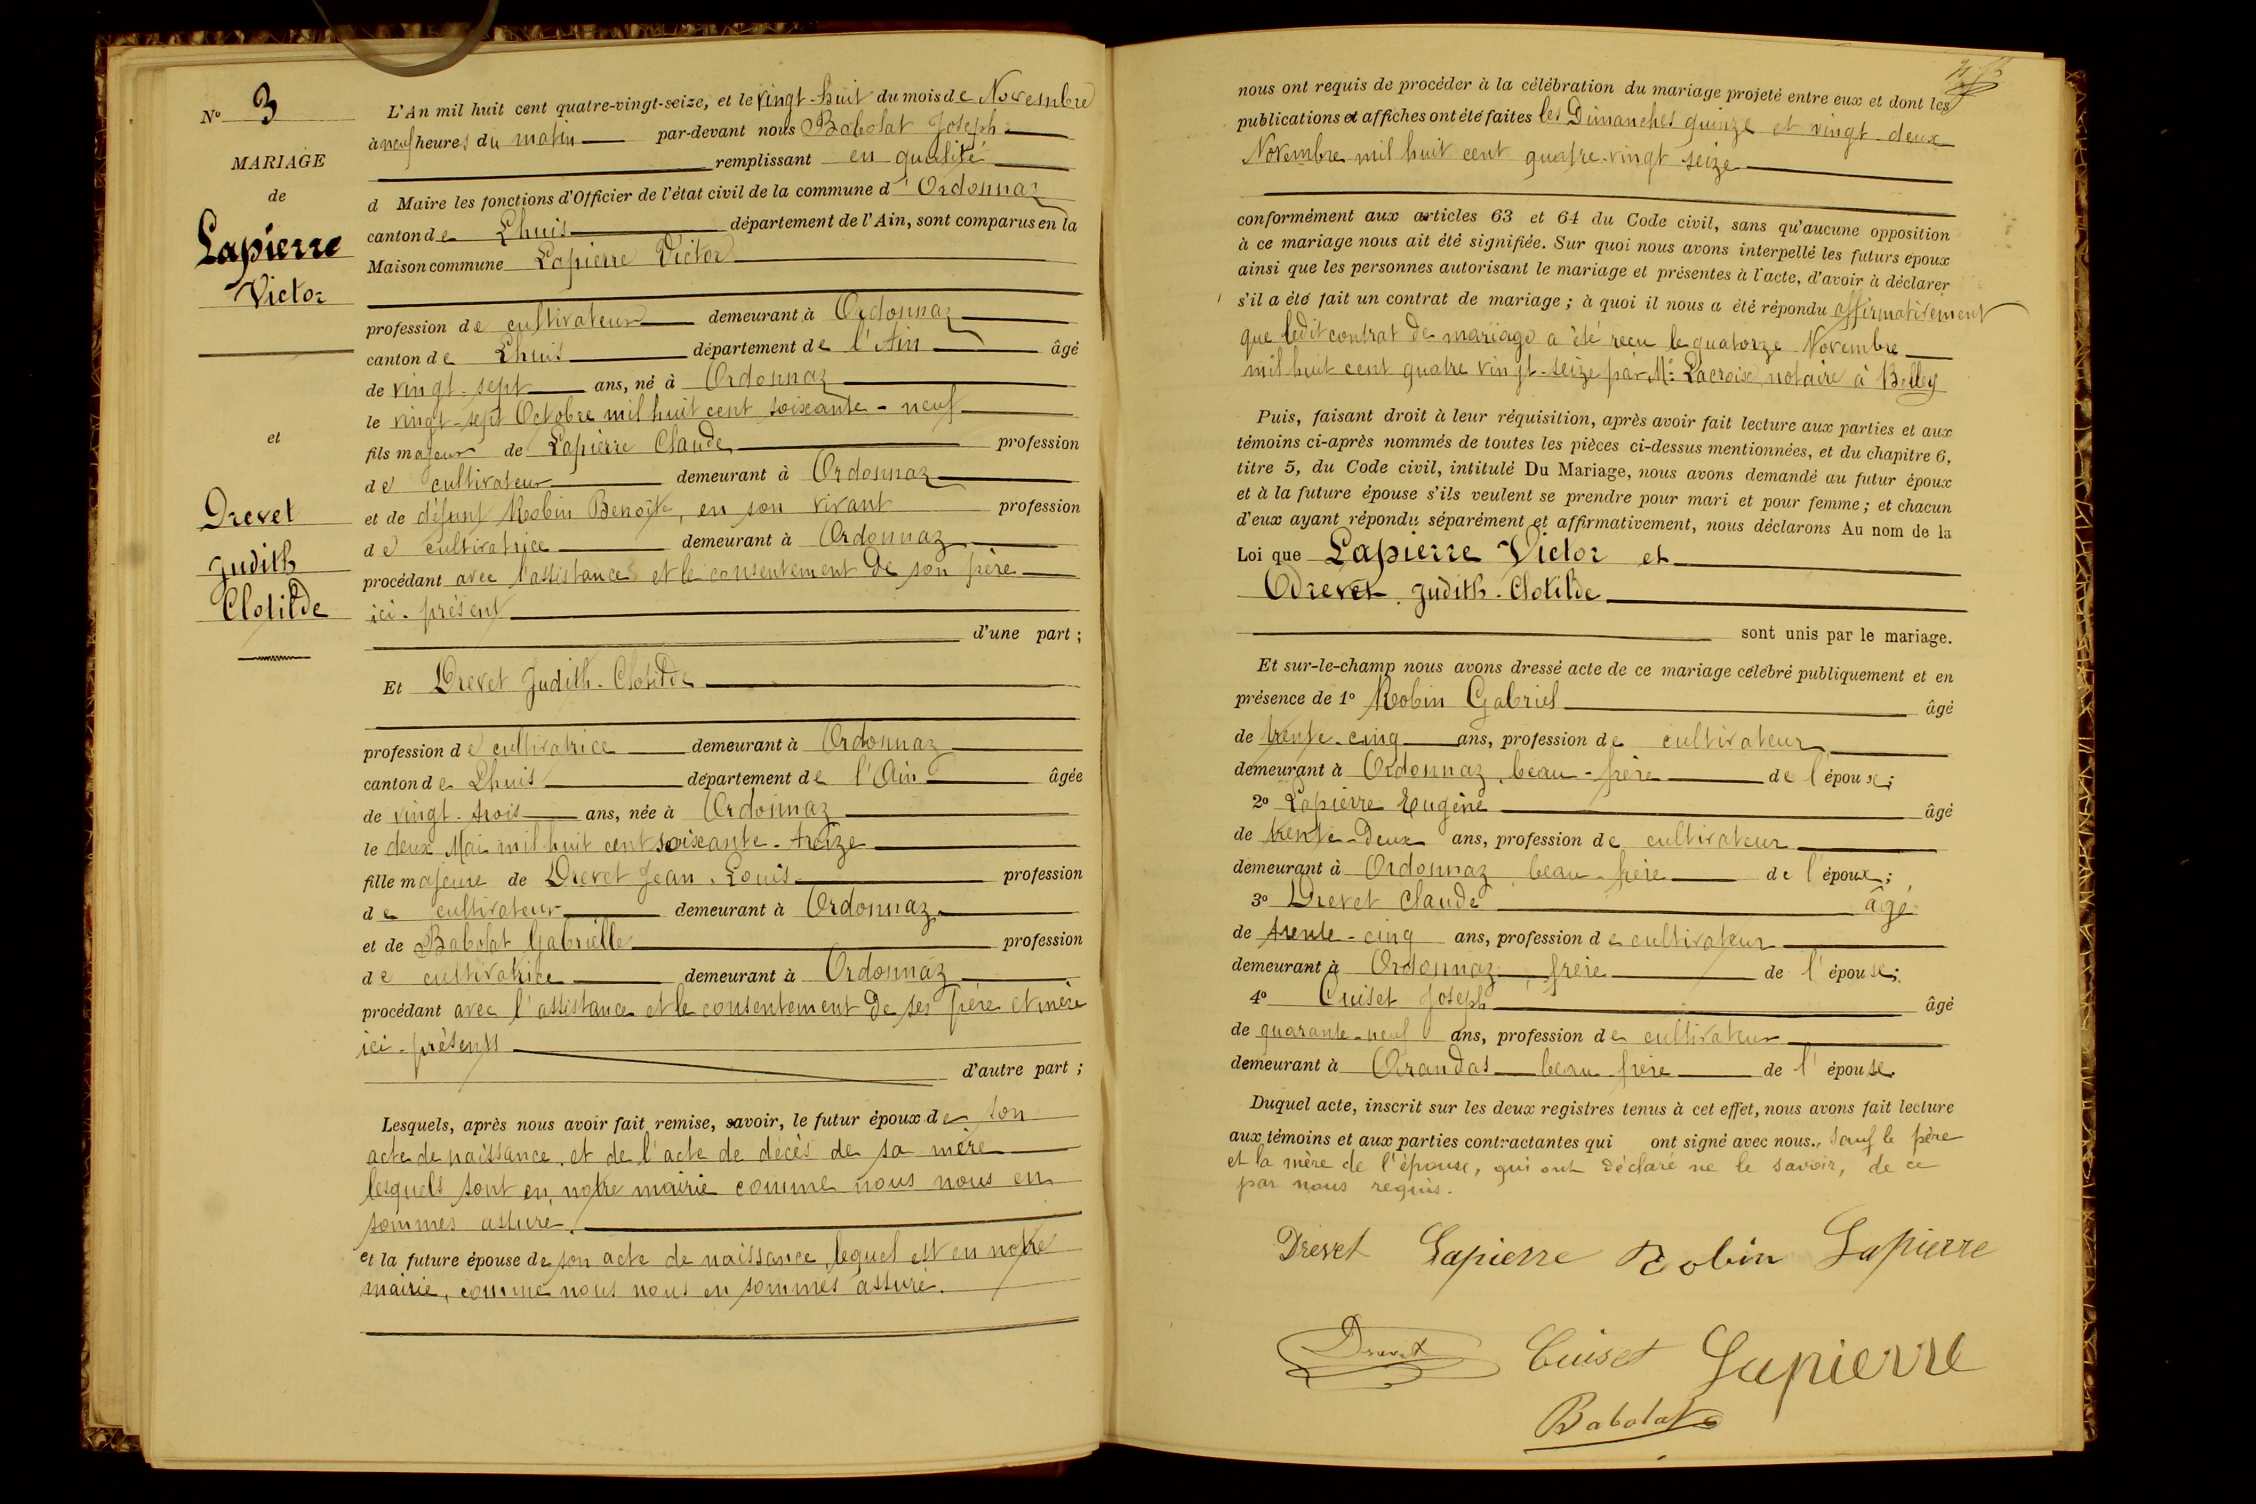 Nº 3
MARIAGE
de
Lapierre
Victor
et
Drevet
Judith
Clotilde
L'An mil huit cent quatre-vingt-seize, et le vingt-huit du mois de Novembre
à neuf heures du matin par-devant nous Babolat Joseph
remplissant en qualité
d Maire les fonctions d'Officier de l'état civil de la commune d'Ordonnaz
canton de Lhuis département de l'Ain, sont comparus en la
Maison commune Lapierre Victor
profession de cultivateur demeurant à Ordonnaz
canton de Lhuis département de l'Ain âgé
de vingt-sept ans, né à Ordonnaz
le vingt-sept Octobre mil huit cent soixante-neuf
fils majeur de Lapierre Claude profession
de cultivateur demeurant à Ordonnaz
et de défunt Robin Benoîte, en son vivant profession
de cultivatrice demeurant à Ordonnaz
procédant avec l'assistance et le consentement de son père
ici-présent
d'une part ;
Et Drevet Judith-Clotilde
profession de cultivatrice demeurant à Ordonnaz
canton de Lhuis département de l'Ain âgée
de vingt-trois ans, née à Ordonnaz
le deux Mai mil huit cent soixante-treize
fille majeure de Drevet Jean-Louis profession
de cultivateur demeurant à Ordonnaz
et de Babolat Gabrielle profession
de cultivatrice demeurant à Ordonnaz
procédant avec l'assistance et le consentement de ses père et mère
ici-présents
d'autre part ;
Lesquels, après nous avoir fait remise, savoir, le futur époux de son
acte de naissance, et de l'acte de décès de sa mère
lesquels sont en notre mairie comme nous nous en
sommes assuré.
et la future épouse de son acte de naissance, lequel est en notre
mairie, comme nous nous en sommes assuré.
nous ont requis de procéder à la célébration du mariage projeté entre eux et dont les
publications et affiches ont été faites les Dimanches quinze et vingt-deux
Novembre mil huit cent quatre-vingt-seize
conformément aux articles 63 et 64 du Code civil, sans qu'aucune opposition
à ce mariage nous ait été signifiée. Sur quoi nous avons interpellé les futurs époux
ainsi que les personnes autorisant le mariage et présentes à l'acte, d'avoir à déclarer
s'il a été fait un contrat de mariage ; à quoi il nous a été répondu affirmativement
que ledit contrat de mariage a été reçu le quatorze Novembre
mil huit cent quatre vingt-seize par Mᵉ Lacroix, notaire à Belley
Puis, faisant droit à leur réquisition, après avoir fait lecture aux parties et aux
témoins ci-après nommés de toutes les pièces ci-dessus mentionnées, et du chapitre 6,
titre 5, du Code civil, intitulé Du Mariage, nous avons demandé au futur époux
et à la future épouse s'ils veulent se prendre pour mari et pour femme ; et chacun
d'eux ayant répondu séparément et affirmativement, nous déclarons Au nom de la
Loi que Lapierre Victor et
Drevet Judith-Clotilde
sont unis par le mariage.
Et sur-le-champ nous avons dressé acte de ce mariage célébré publiquement et en
présence de 1º Robin Gabriel âgé
de trente-cinq ans, profession de cultivateur
demeurant à Ordonnaz, beau-frère de l'époux ;
2º Lapierre Eugène âgé
de trente-deux ans, profession de cultivateur
demeurant à Ordonnaz, beau-frère de l'époux ;
3º Drevet Claude âgé
de trente-cinq ans, profession de cultivateur
demeurant à Ordonnaz, frère de l'épouse ;
4º Cuiset Joseph âgé
de quarante-neuf ans, profession de cultivateur
demeurant à Arandas beau-frère de l'épouse.
Duquel acte, inscrit sur les deux registres tenus à cet effet, nous avons fait lecture
aux témoins et aux parties contractantes qui ont signé avec nous., sauf le père
et la mère de l'épouse, qui ont déclaré ne le savoir, de ce
par nous requis.
Drevet Lapierre Robin Lapierre
Drevet Cuiset Lapierre
Babolat